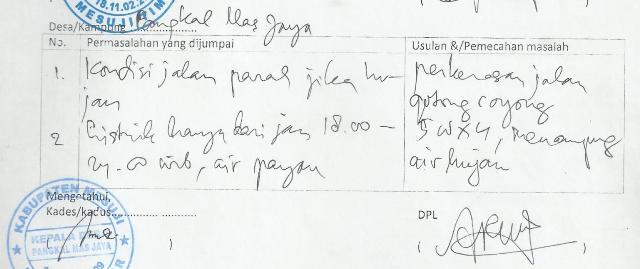 18.11.02.2
MESUJI TIM
Desa/Kampung Pangkal Mas Jaya
No. Permasalahan yang dijumpai Usulan &/Pemecahan masalah
1. Kondisi jalan parah jika hu- perkerasan jalan
jan gotong royong
2 listrik hanya dari jam 18.00 – 5 W x 4, menampung
wib, air payau air hujan
Mengetahui,
Kades/kadus DPL
KABUPATEN MESUJI
KEPALA
PANGKAL MAS JAYA
( ) ( )